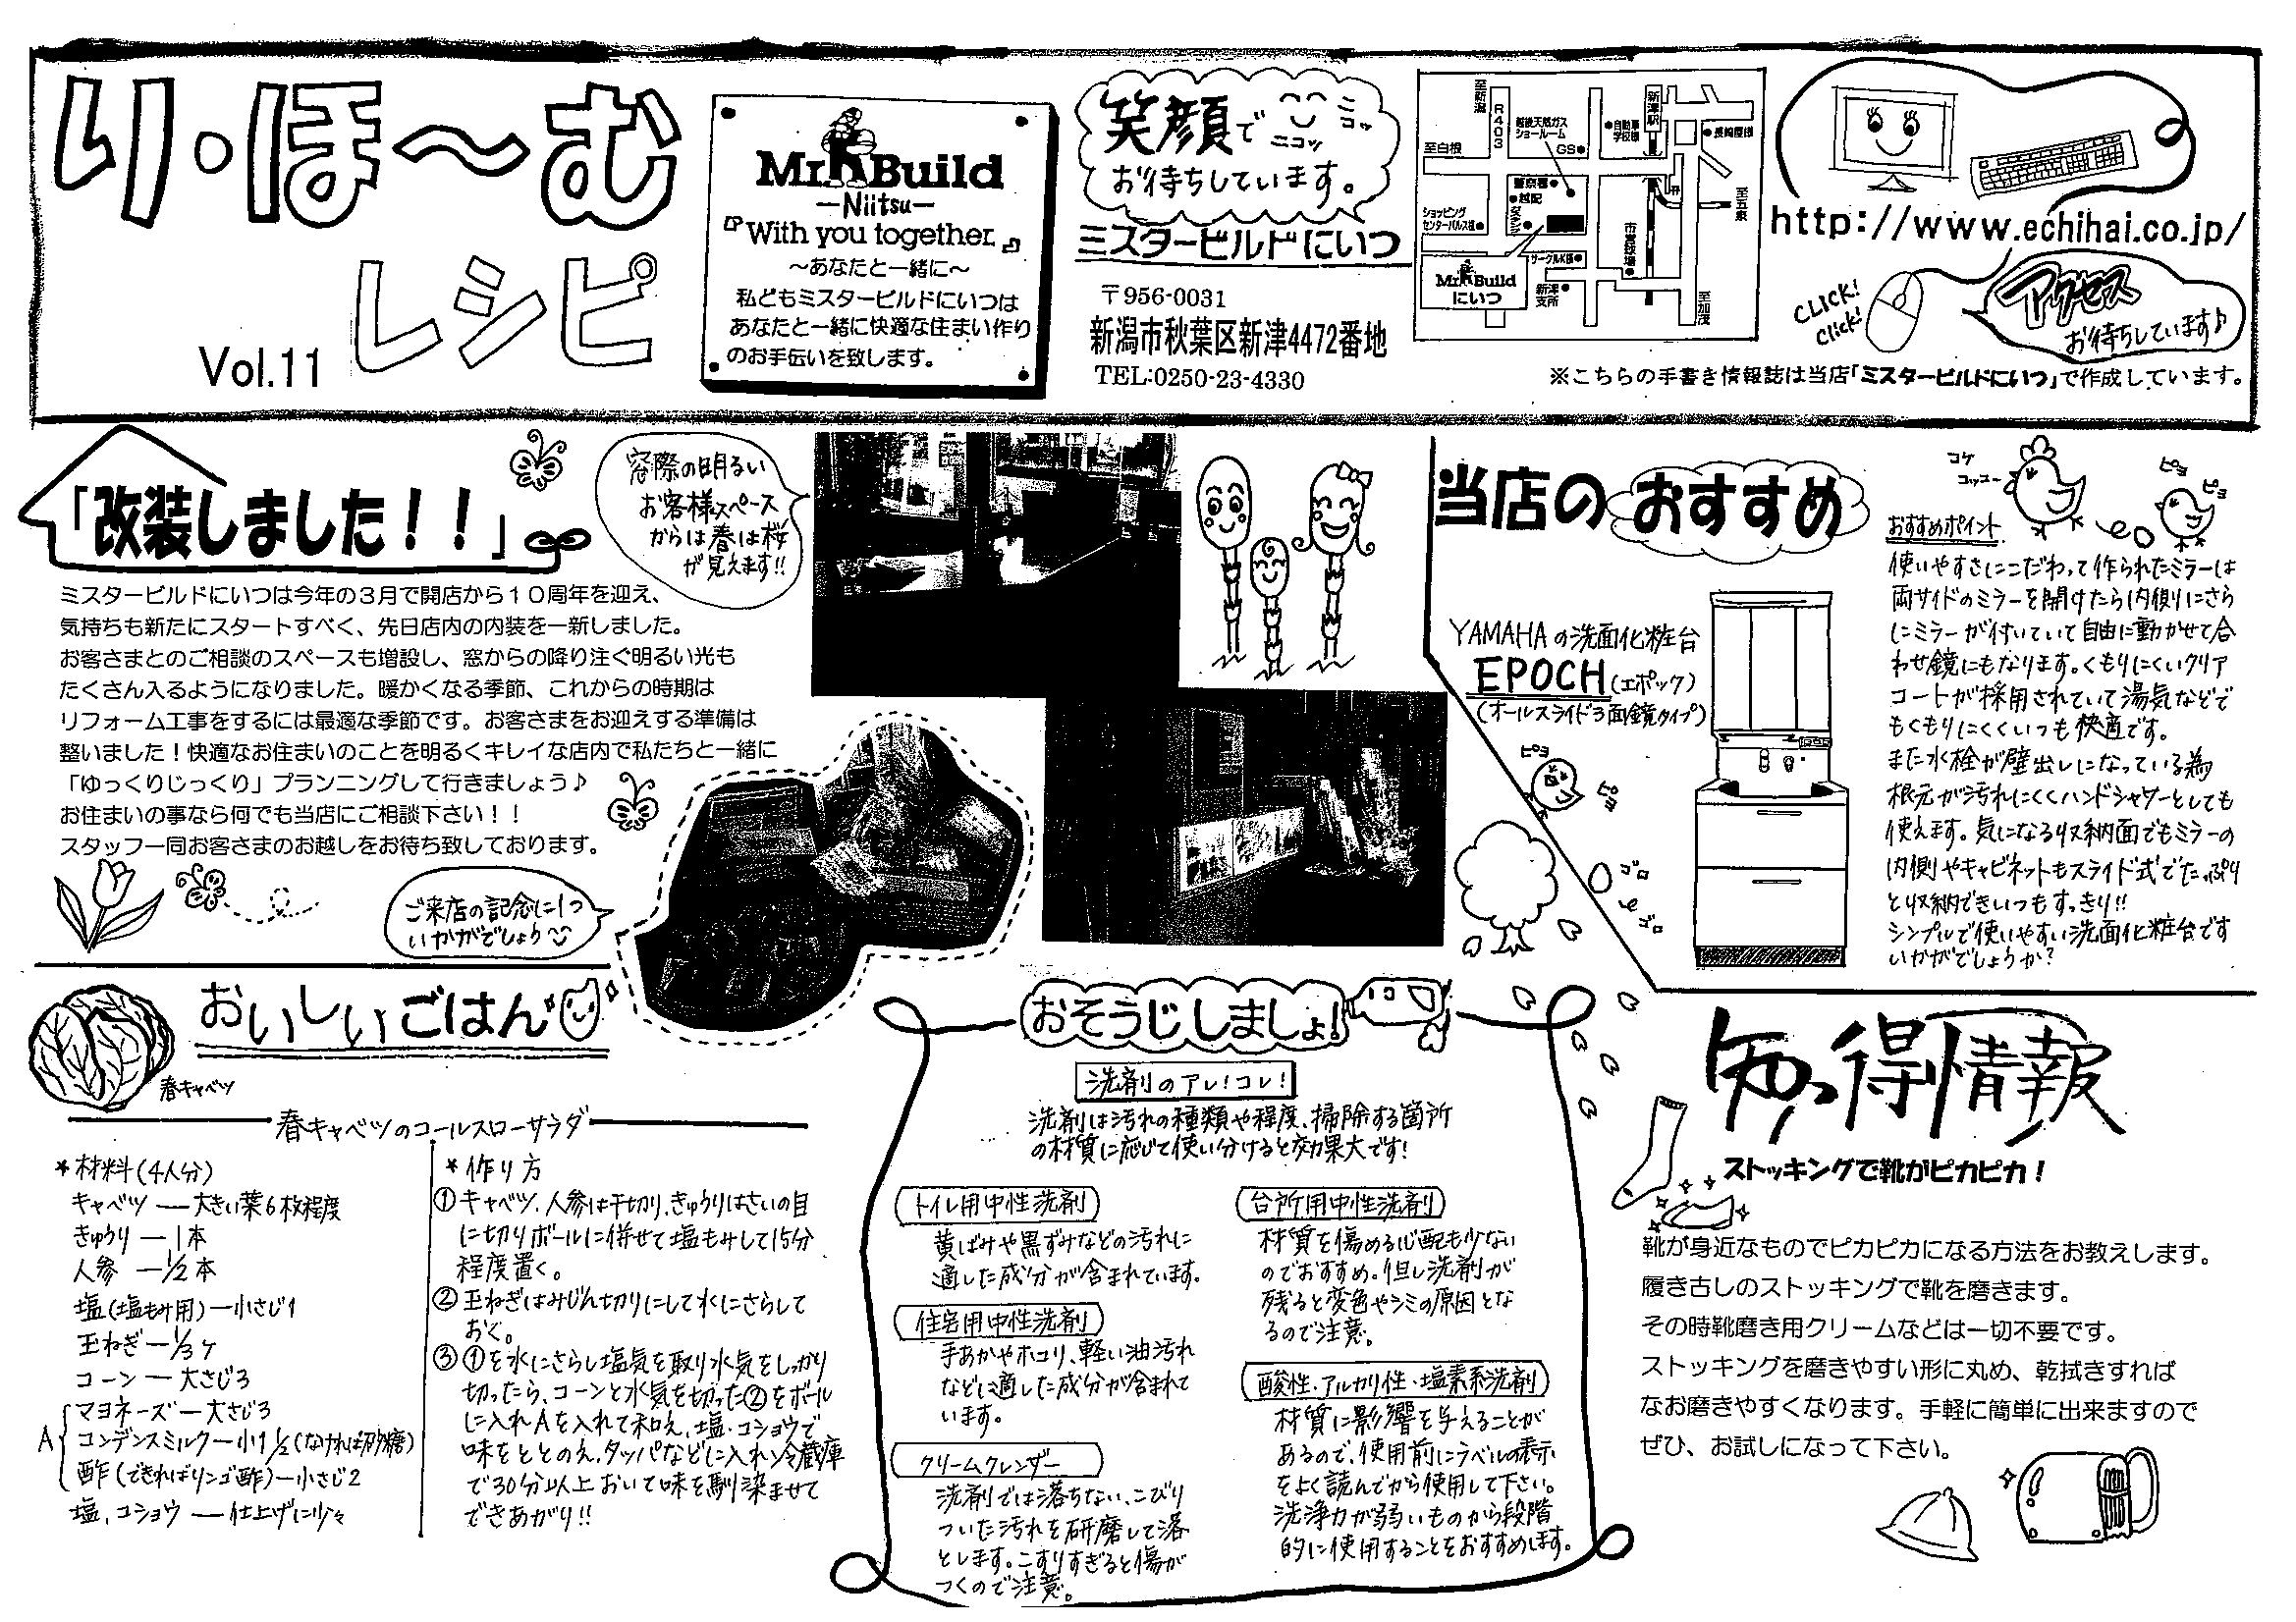 り・ほ〜む
レシピ
Vol.11
Mr Build
ーNiitsuー
『With you together.』
〜あなたと一緒に〜
私どもミスタービルドにいつは
あなたと一緒に快適な住まい作り
のお手伝いを致します。
笑顔で ニコッ ニコッ
お待ちしています。
ミスタービルドにいつ
〒956-0031
新潟市秋葉区新津4472番地
TEL:0250-23-4330
至新潟
R403
越後天然ガス
ショールーム
GS
自動車
学校様
新津駅
長崎屋様
至白根
警察署
越配
ショッピング
センターパルス様
サークルK様
新津
支所
市営球場
至五泉
至加茂
Mr Build
にいつ
http://www.echihai.co.jp/
CLICK!
Click!
アクセス
お待ちしています♪
※こちらの手書き情報誌は当店「ミスタービルドにいつ」で作成しています。
「改装しました！！」
窓際の明るい
お客様スペース
からは春は桜
が見えます!!
ミスタービルドにいつは今年の３月で開店から１０周年を迎え、
気持ちも新たにスタートすべく、先日店内の内装を一新しました。
お客さまとのご相談のスペースも増設し、窓からの降り注ぐ明るい光も
たくさん入るようになりました。暖かくなる季節、これからの時期は
リフォーム工事をするには最適な季節です。お客さまをお迎えする準備は
整いました！快適なお住まいのことを明るくキレイな店内で私たちと一緒に
「ゆっくりじっくり」プランニングして行きましょう♪
お住まいの事なら何でも当店にご相談下さい！！
スタッフ一同お客さまのお越しをお待ち致しております。
ご来店の記念に1つ
いかがでしょう
当店のおすすめ
コケ
コッコー
ピヨ
ピヨ
YAMAHAの洗面化粧台
EPOCH(エポック)
(オールスライド3面鏡タイプ)
ピヨ
ピヨ
ゴロ
ゴロ
おすすめポイント
使いやすさにこだわって作られたミラーは
両サイドのミラーを開けたら内側にさら
にミラーが付いていて自由に動かせて合
わせ鏡にもなります。くもりにくいクリア
コートが採用されていて湯気などで
もくもりにくくいつも快適です。
また水栓が壁出しになっている為
根元が汚れにくくハンドシャワーとしても
使えます。気になる収納面でもミラーの
内側やキャビネットもスライド式でたっぷり
と収納できいつもすっきり!!
シンプルで使いやすい洗面化粧台です
いかがでしょうか?
おいしいごはん
春キャベツ
春キャベツのコールスローサラダ
*材料(4人分)
キャベツ ― 大きい葉6枚程度
きゅうり ― 1本
人参 ― 1/2本
塩(塩もみ用) ― 小さじ1
玉ねぎ ― 1/3ケ
コーン ― 大さじ3
A
マヨネーズ ― 大さじ3
コンデンスミルク ― 小1 1/2(なければ砂糖)
酢(できればリンゴ酢) ― 小さじ2
塩、コショウ ― 仕上げに少々
*作り方
①キャベツ、人参は千切り、きゅうりはさいの目
に切りボールに併せて塩もみして15分
程度置く。
②玉ねぎはみじん切りにして水にさらして
おく。
③①を水にさらし塩気を取り水気をしっかり
切ったら、コーンと水気を切った②をボール
に入れAを入れて和え、塩・コショウで
味をととのえ、タッパなどに入れ冷蔵庫
で30分以上おいて味を馴染ませて
できあがり!!
おそうじしましょ!
洗剤のアレ!コレ!
洗剤は汚れの種類や程度、掃除する箇所
の材質に応じて使い分けると効果大です!
トイレ用中性洗剤
黄ばみや黒ずみなどの汚れに
適した成分が含まれています。
住宅用中性洗剤
手あかやホコリ、軽い油汚れ
などに適した成分が含まれて
います。
クリームクレンザー
洗剤では落ちない、こびり
ついた汚れを研磨して落
とします。こすりすぎると傷が
つくので注意。
台所用中性洗剤
材質を傷める心配も少ない
のでおすすめ。但し洗剤が
残ると変色やシミの原因とな
るので注意。
酸性・アルカリ性・塩素系洗剤
材質に影響を与えることが
あるので、使用前にラベルの表示
をよく読んでから使用して下さい。
洗浄力が弱いものから段階
的に使用することをおすすめします。
知っ得情報
ストッキングで靴がピカピカ！
靴が身近なものでピカピカになる方法をお教えします。
履き古しのストッキングで靴を磨きます。
その時靴磨き用クリームなどは一切不要です。
ストッキングを磨きやすい形に丸め、乾拭きすれば
なお磨きやすくなります。手軽に簡単に出来ますので
ぜひ、お試しになって下さい。